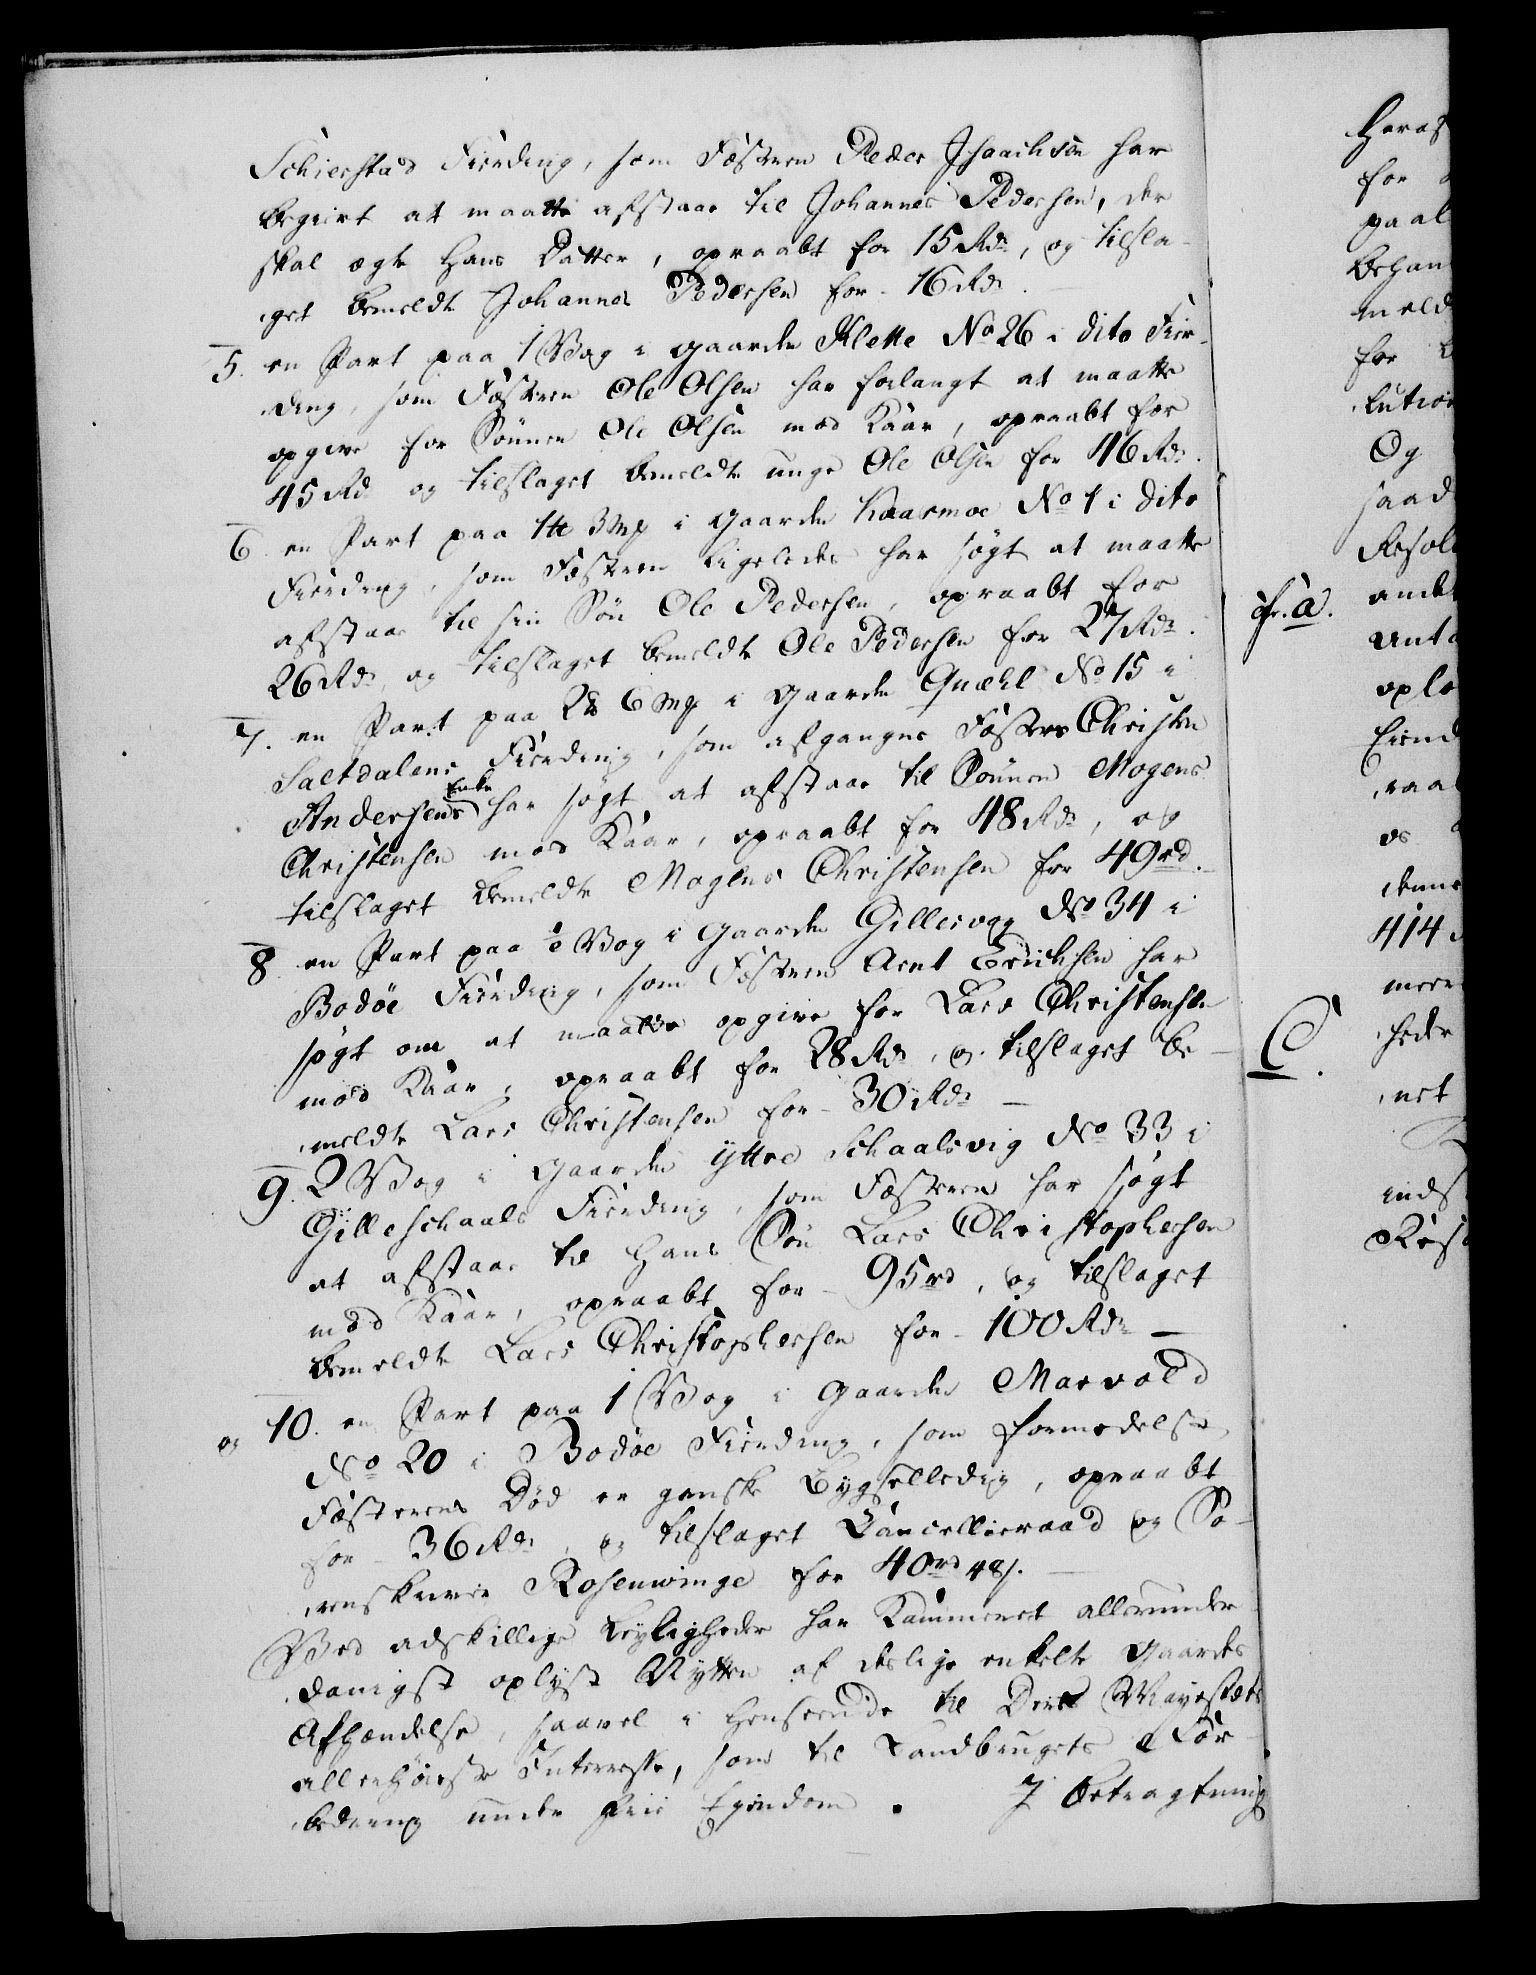 Schierstad Fierding, som Fæsteren Peder Isaachsen har
begiert at maatte afstaae til Johannes Pedersen, der
skal ægte hans Datter, opraabt for 15 Rdr, og tilsla-
get bemeldte Johannes Pedersen for 16 Rdr.
5. en Part paa 1 Vog i Gaarden Klette No 26 i dito Fier-
ding, som Fæsteren Ole Olsen har forlangt at maatte
opgive for Sønnen Ole Olsen mod Kaar, opraabt for
45 Rdr og tilslaget bemeldte unge Ole Olsen for 46 Rdr.
6. en Part paa 1 3 Mk i Gaarden Kaarmoe No 1 i dito
Fierding, som Fæsteren ligeledes har søgt at maatte
afstaae til sin Søn Ole Pedersen, opraabt for
26 Rdr, og tilslaget bemeldte Ole Pedersen for 27 Rdr.
7. en Part paa 2 6 Mk i Gaarden Quæhl No 15 i
Saltdalens Fierding, som afgangne Fæsters Christen
Andersens Enke har søgt at afstaae til Sønnen Mogens
Christensen mod Kaar, opraabt for 48 Rdr, og
tilslaget bemeldte Mogens Christensen for 49 rd.
8. en Part paa ½ Vog i Gaarden Gillesvog No 34 i
Bodøe Fierding, som Fæsteren Arnt Erichsen har
søgt om at maatte opgive for Lars Christensen
mod Kaar, opraabt for 28 Rdr, og tilslaget be-
meldte Lars Christensen for 30 Rdr
9. 2 Vog i Gaarden Yttre Schaalsvig No 33 i
Gilleschaals Fierding, som Fæsteren har søgt
at afstaae til hans Søn Lars Christophersen
mod Kaar, opraabt for 95 rd, og tilslaget
bemeldte Lars Christophersen for 100 Rdr
og 10. en Part paa 1 Vog i Gaarden Marvold
No 20 i Bodøe Fierding, som formedelst
Fæsterens Død er ganske Bygselledig, opraabt
for 36 Rdr, og tilslaget Cancellieraad og So-
renskriver Rosenvinge for 40 rd 48 s.
Ved adskillige Leyligheder har Kammeret allerunder-
danigst oplyst Nytten af deslige enkelte Gaardes
Afhændelse, saavel i Henseende til Deres Mayestæts
allerhøieste Interesse, som til Landbrugets For-
bedring under friie Eyendom. I Betragtning
cfr. a.
C.
for
paal
behan
meld
for
lution
Og
saad
Resol
andet
anta
oplo
Eiend
raa
os
denne
414
meer
heder
net
inds
Res